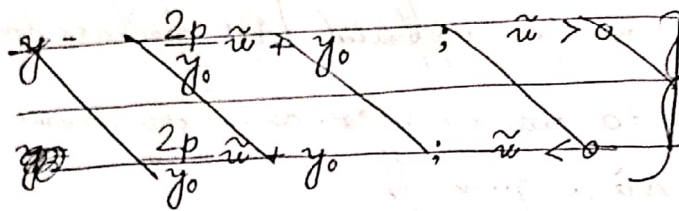 y - \frac{2p}{y_0} \tilde{u} + y_0 ; \tilde{u} > 0
\frac{2p}{y_0} \tilde{u} + y_0 ; \tilde{u} < 0